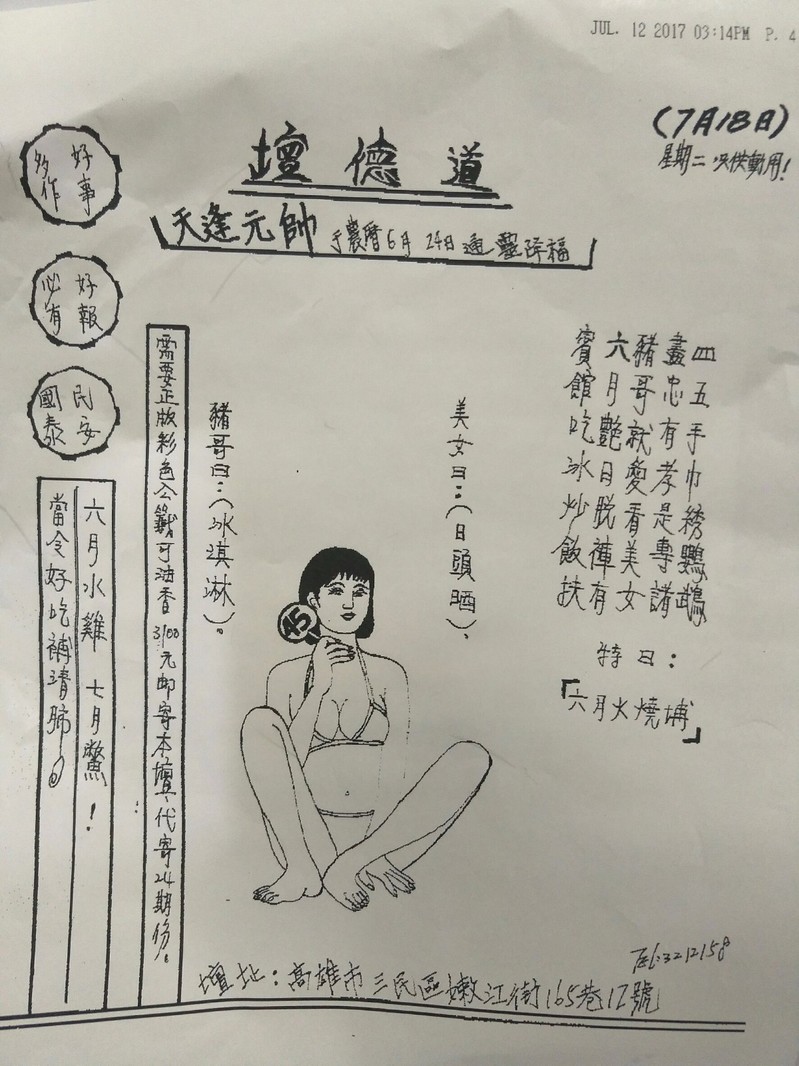 JUL. 12 2017 03:14PM P. 4
(7月18日)
星期二
道德壇
天逢元帥 于農曆6月24日通靈降福
好事
多作
好報
必有
民安
國泰
四五手巾綉鸚鵡
盡忠有孝是專諸
豬哥就愛看美女
六月艷日脫褲有
賓館吃冰炒飯扶
特曰：
「六月火燒埔」
美女曰：（日頭晒）、
豬哥曰：（冰淇淋）。
45
需要正版彩色公籤可油香3100元邮寄本壇、代寄24期份。
六月水雞 七月鱉！
當令好吃補清肺。
Tel:3212158
壇址：高雄市三民區嫩江街165巷12號